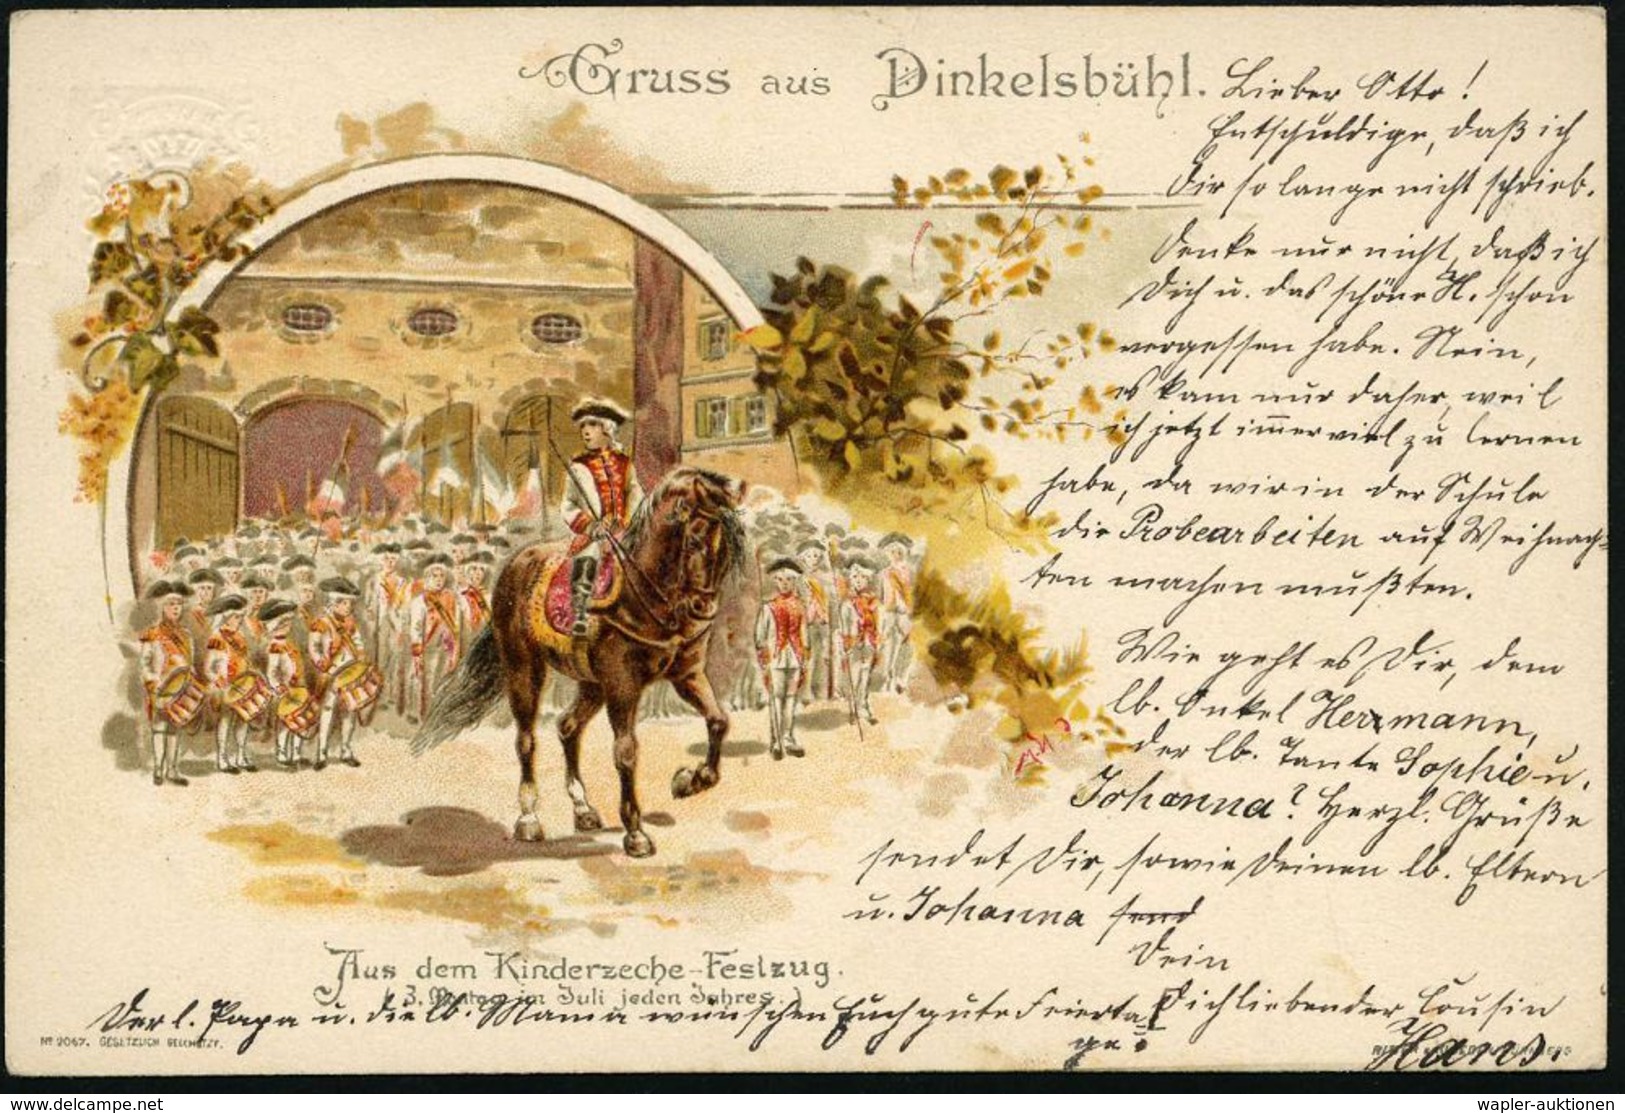 Gruss aus Dinkelsbühl.
Lieber Otto!
Entschuldige, daß ich
Dir so lange nicht schrieb.
Denke nur nicht, daß ich
Dich u. das schöne H. schon
vergessen habe. Nein,
es kam nur daher, weil
ich jetzt im̅er viel zu lernen
habe, da wir in der Schule
die Probearbeiten auf Weihnach-
ten machen mußten.
Wie geht es Dir, dem
lb. Onkel Hermann,
der lb. Tante Sophie u.
Johanna? Herzl. Grüße
sendet Dir, sowie Deinen lb. Eltern
u. Johanna send
Dein
Dich liebender Cousin
Hans.
Aus dem Kinderzeche-Festzug.
(3. Montag im Juli jeden Jahres.)
Der l. Papa u. die lb. Mama wünschen Euch gute Feierta-
ge!
No 2067. GESETZLICH GESCHÜTZT.
wapler-auktionen
www.delcampe.net